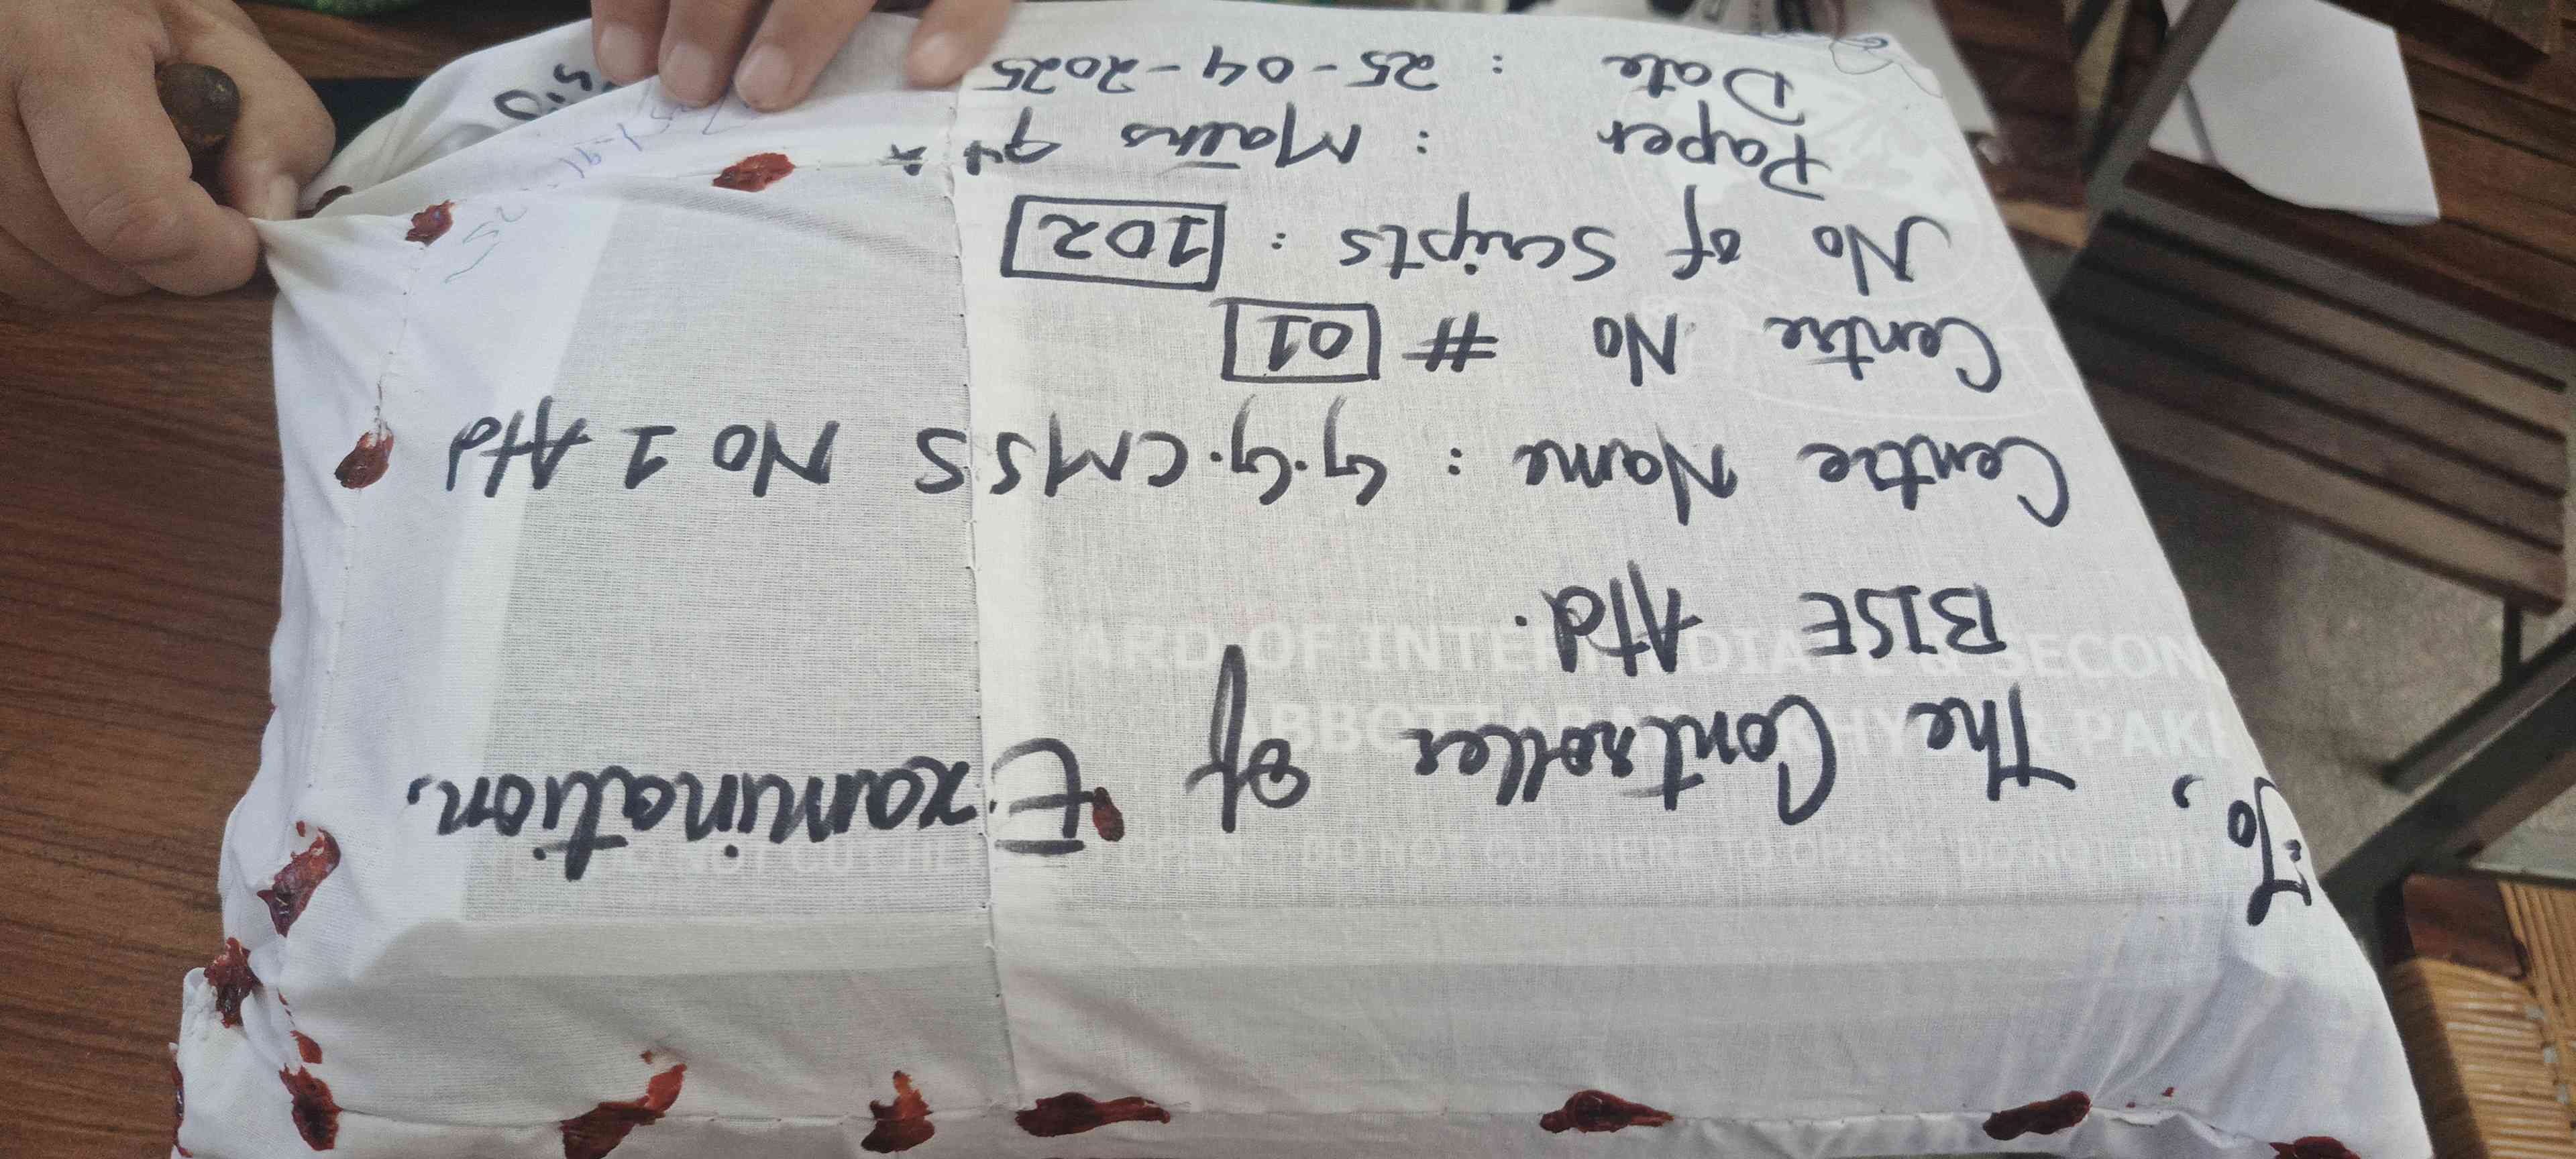 To,
The Controller of Examination.
BISE Atd.
Centre Name : G.G.CMSS No 1 Atd
Centre No # 01
No of Scripts : 102
Paper : Maths 9th
Date : 25-04-2025
ARD OF INTERMEDIATE & SECON
ABBOTTABAD KHYBER PAKH
DO NOT CUT HERE TO OPEN DO NOT CUT HERE TO OPEN DO NOT CUT